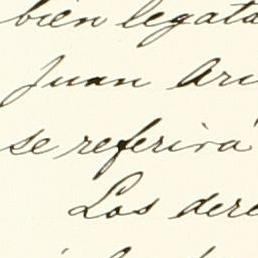 bien legata
Juan Ari
se referirá
Los dere